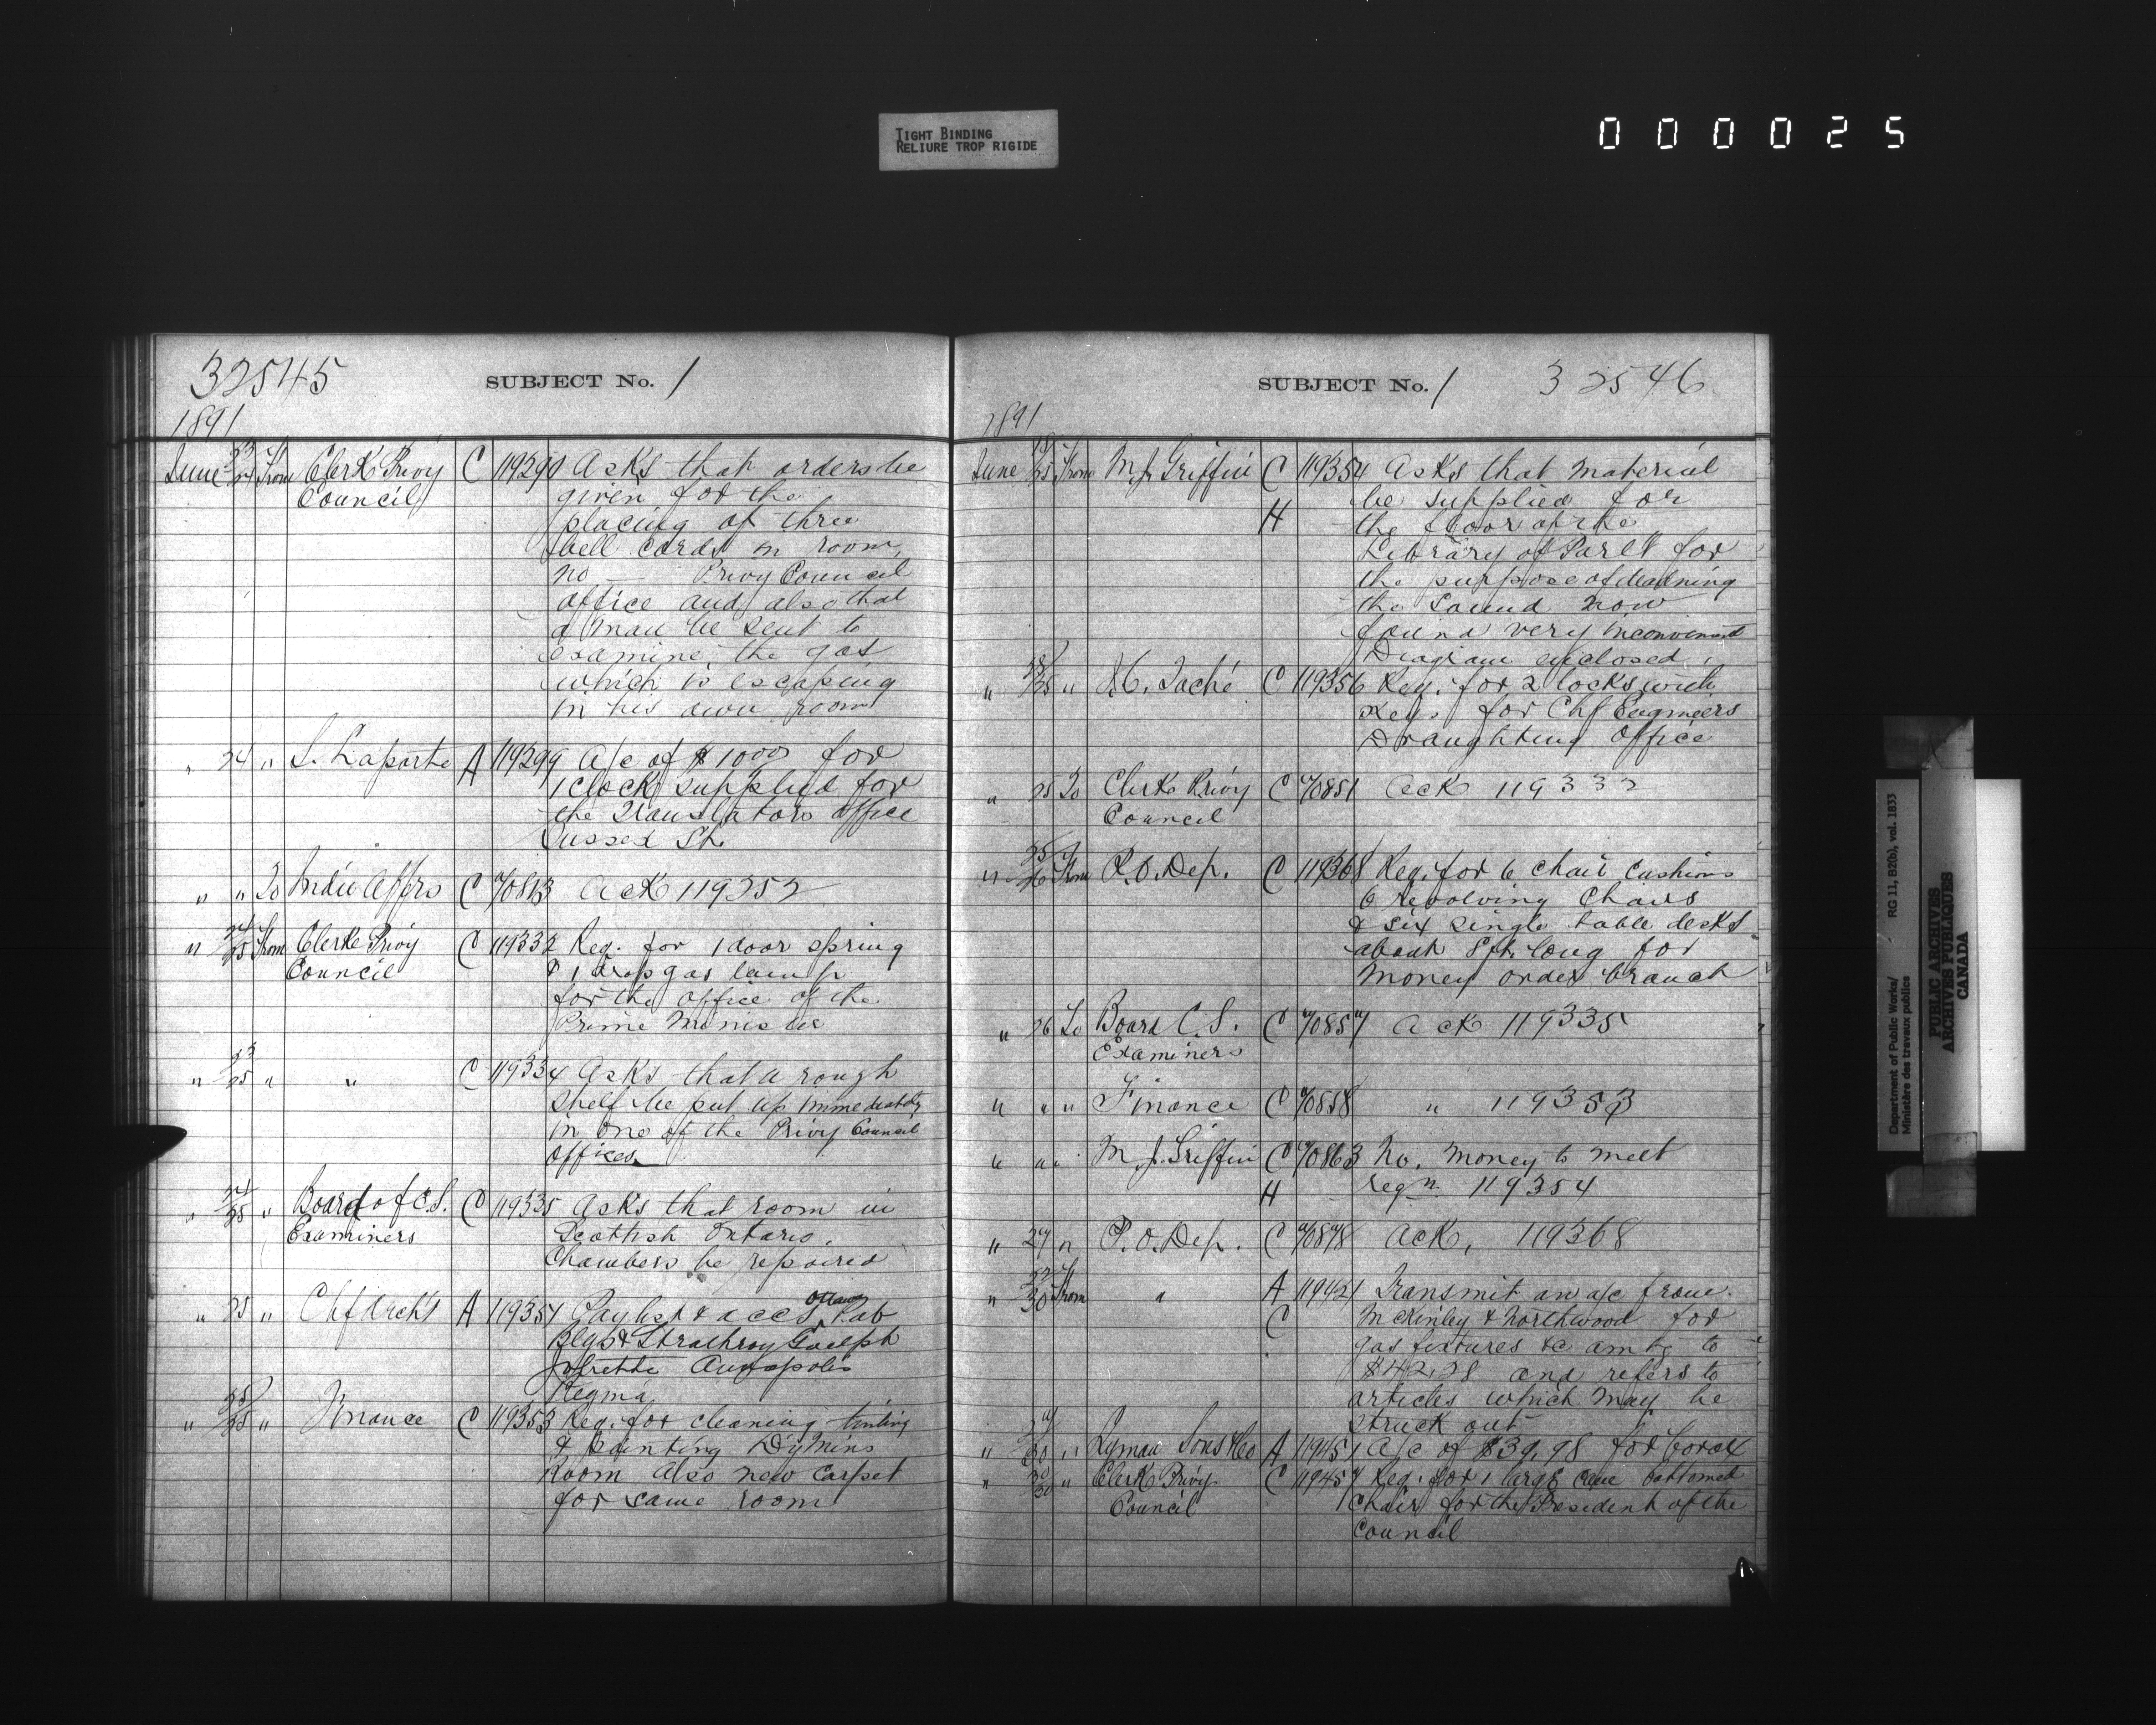 TIGHT BINDING
RELIURE TROP RIGIDE
000025
32545
SUBJECT No. 1
1891
June 23/24 From Clerk Privy C 119290 Asks that orders be
Council given for the
placing of three
bell cords in room
no — Privy Council
office and also that
a man be sent to
examine the gas
which is escaping
in his own room
" 24 " L. Laporte A 119299 A/c of $1000 for
1 clock supplied for
the Translators office
Sussex St.
" " To Indie Affrs C ACK 119252
" 24/25 From Clerk Privy C 119332 Req. for 1 door spring
Council & 1 drop gas lamp
for the office of the
Prime Minister
" 23/25 " " C 119334 Asks that a rough
shelf be put up immediately
in one of the Privy Council
offices
" 24/25 " Board of C.S. C 119335 Asks that room in
Examiners Scottish Ontario
Chambers be repaired
" 25 " Chf Archt A 119351 Paylist & accts Ottawa Pub
Blgs & Strathroy Guelph
Joliette Annapolis
Regina
" 25/25 " Finance C 119353 Req. for cleaning tinting
& painting Dy Mins
Room also new carpet
for same room
SUBJECT No. 1 32546
1891
June From M.J. Griffin C 119354 Asks that material
H be supplied for
the floor of the
Library of Parlt for
the purpose of deadning
the sound now
found very inconvenient
Diagram enclosed.
" " Taché C 119356 Req. for 2 locks with
Keys for Chf Engineers
Draughting Office
" 25 To Clerk Privy C 70851 ACK 119332
Council
" 25/26 From P.O. Dep. C 119368 Req. for 6 chair cushions
6 revolving chairs
& six single table desks
about 8 ft. long for
money order branch
" 26 To Board C.S. C 70857 ACK 119335
Examiners
" " " Finance C 70858 " 119353
" " " M.J. Griffin C 70863 No. money to meet
H reqn. 119354
" 27 " P.O. Dep. C 70878 ACK. 119368
" 30 From " A 119421 Transmit an a/c from
C McKinley & Northwood for
gas fixtures &c amtg to
$42.28 and refers to
articles which may be
struck out
" 30 " Lyman Sons & Co A 119451 A/c of $39.98 for borax
" 30/30 " Clerk Privy C 119457 Req. for 1 large cane bottomed
Council chair for the President of the
Council
Department of Public Works/ RG 11, B2(b), vol. 1833
Ministère des travaux publics
PUBLIC ARCHIVES
ARCHIVES PUBLIQUES
CANADA